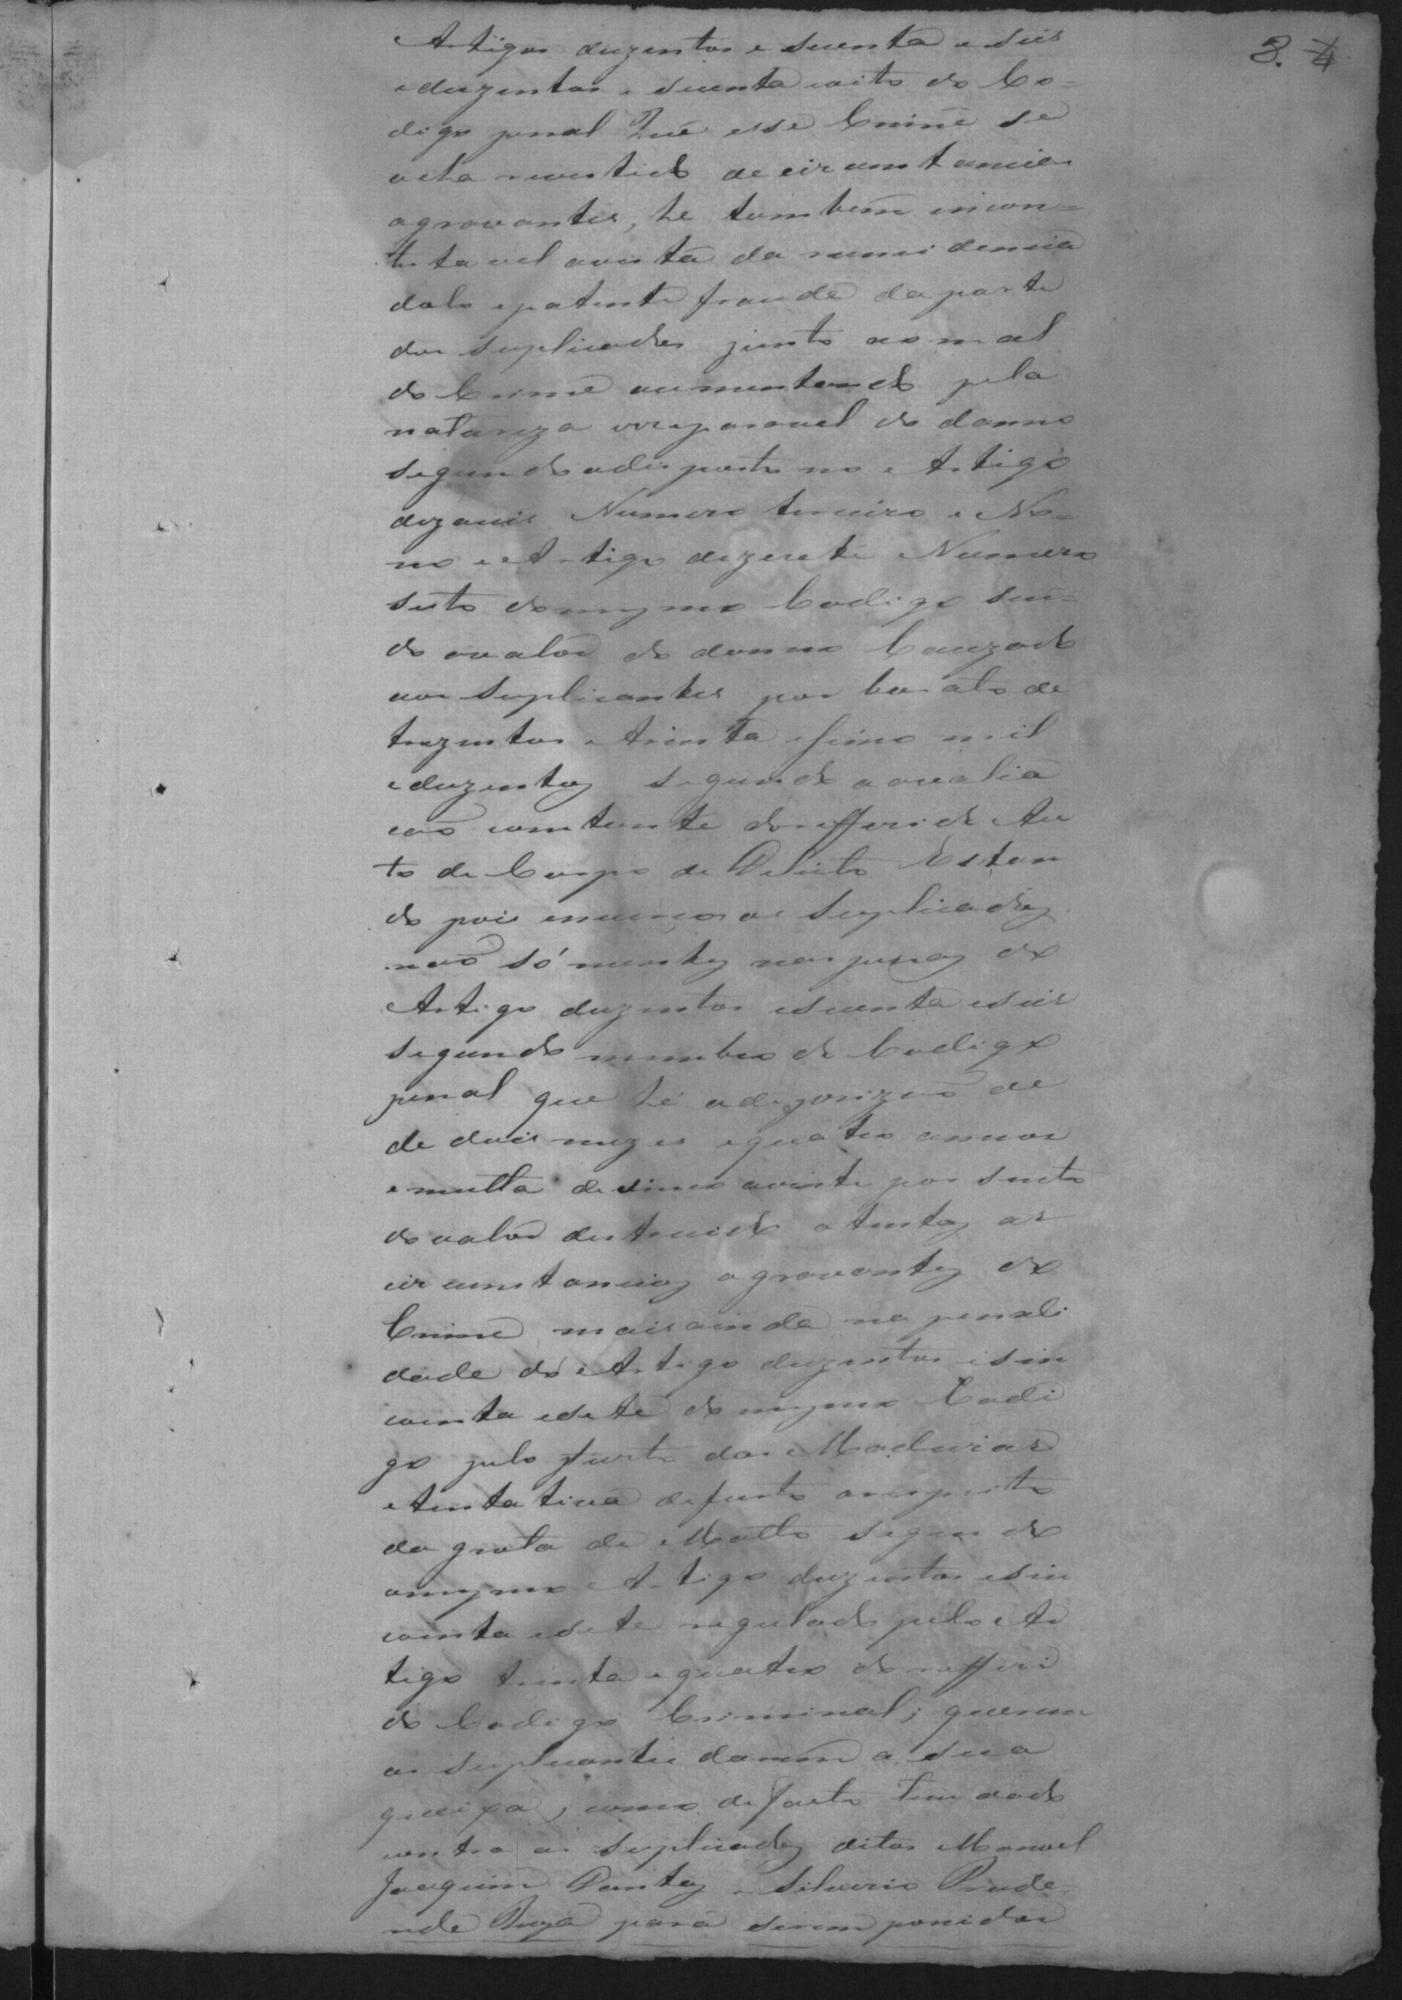 3. 4
Artigos duzentos e secenta e seis
e duzentos e secenta e oito do Co-
digo penal Que esse Crime se
acha revestido de circumstancias
agravantes, he tambem incon-
testavel avista da
dolo e patente fraude da parte
dos suplicados junto ao mal
do Crime aumentando pela
natureza irreparavel do damno
segundo adisposto no Artigo
dezaceis Numero terceiro e No-
no e Artigo dezecete Numero
sesto do mesmo Codigo sen-
do ovalor do damno Cauzado
aos Suplicantes por barato de
trezentos e trinta e sinco mil
e duzentos segundo a avalia
caõ constante do refferido Au
to de Corpo de Delicto Estan
do pois incursos os Suplicados
naõ só mente nas penas do
Artigo duzentos e secenta e seis
segundo membro do Codigo
penal que hé a de prizaõ de
de dois mezes e quatro annos
e multa de sinco avinte por sento
do valor destruido atentas as
circumstancias agravantes do
Crime mais ainda na penali
dade do Artigo duzentos e sin
coenta e sete do mesmo Codi
go pelo furto das Madeiras
e tentativa de furto a respeito
da grota de Matto segundo
o mesmo Artigo duzentos e sin
coenta e sete regulado pelo Ar
tigo trinta e quatro do refferi
do Codigo Criminal; querem
os suplicantes darem a sua
queixa, como de facto tem dado
contra os suplicados ditos Manoel
Joaquim Dantas e Silverio
para serem ponidos